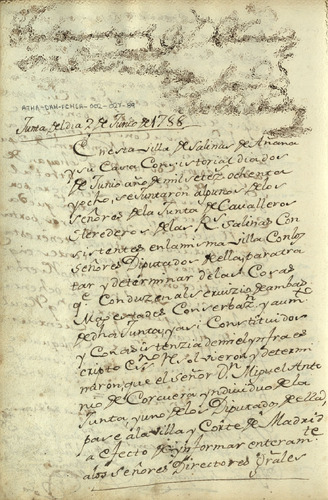 ATHA-DAH-FCHLA-002-027-04
Junta del dia 2 de Junio de 1788
En esta Villa de Salinas de Añana
y su Casa Consistorial dia dos
de Junio año de mil setez. ochenta
y ocho, se Juntaron algunos de los
Señores de la Junta de Cavalleros
Erederos de las Rs. Salinas Con
sistentes en la misma Villa Con los
Señores Diputados de ella, para tra
tar y determinar de las Cosas
q.e Conduzen al servizio de ambas
Magestades Conserbaz.n y aum.to
de dha Junta, y asi Constituidos
y Con asistenzia de mi el ynfraes
cripto Es.no Resolvieron y determi
narón, que el señor Dn. Miguel Anto
nio de Corcuera yndividuo de la
Junta, y uno de los Diputados de ella,
pase a la villa y Corte de Madrid
a efecto de ynformar enteram.te
a los Señores Directores Grâles